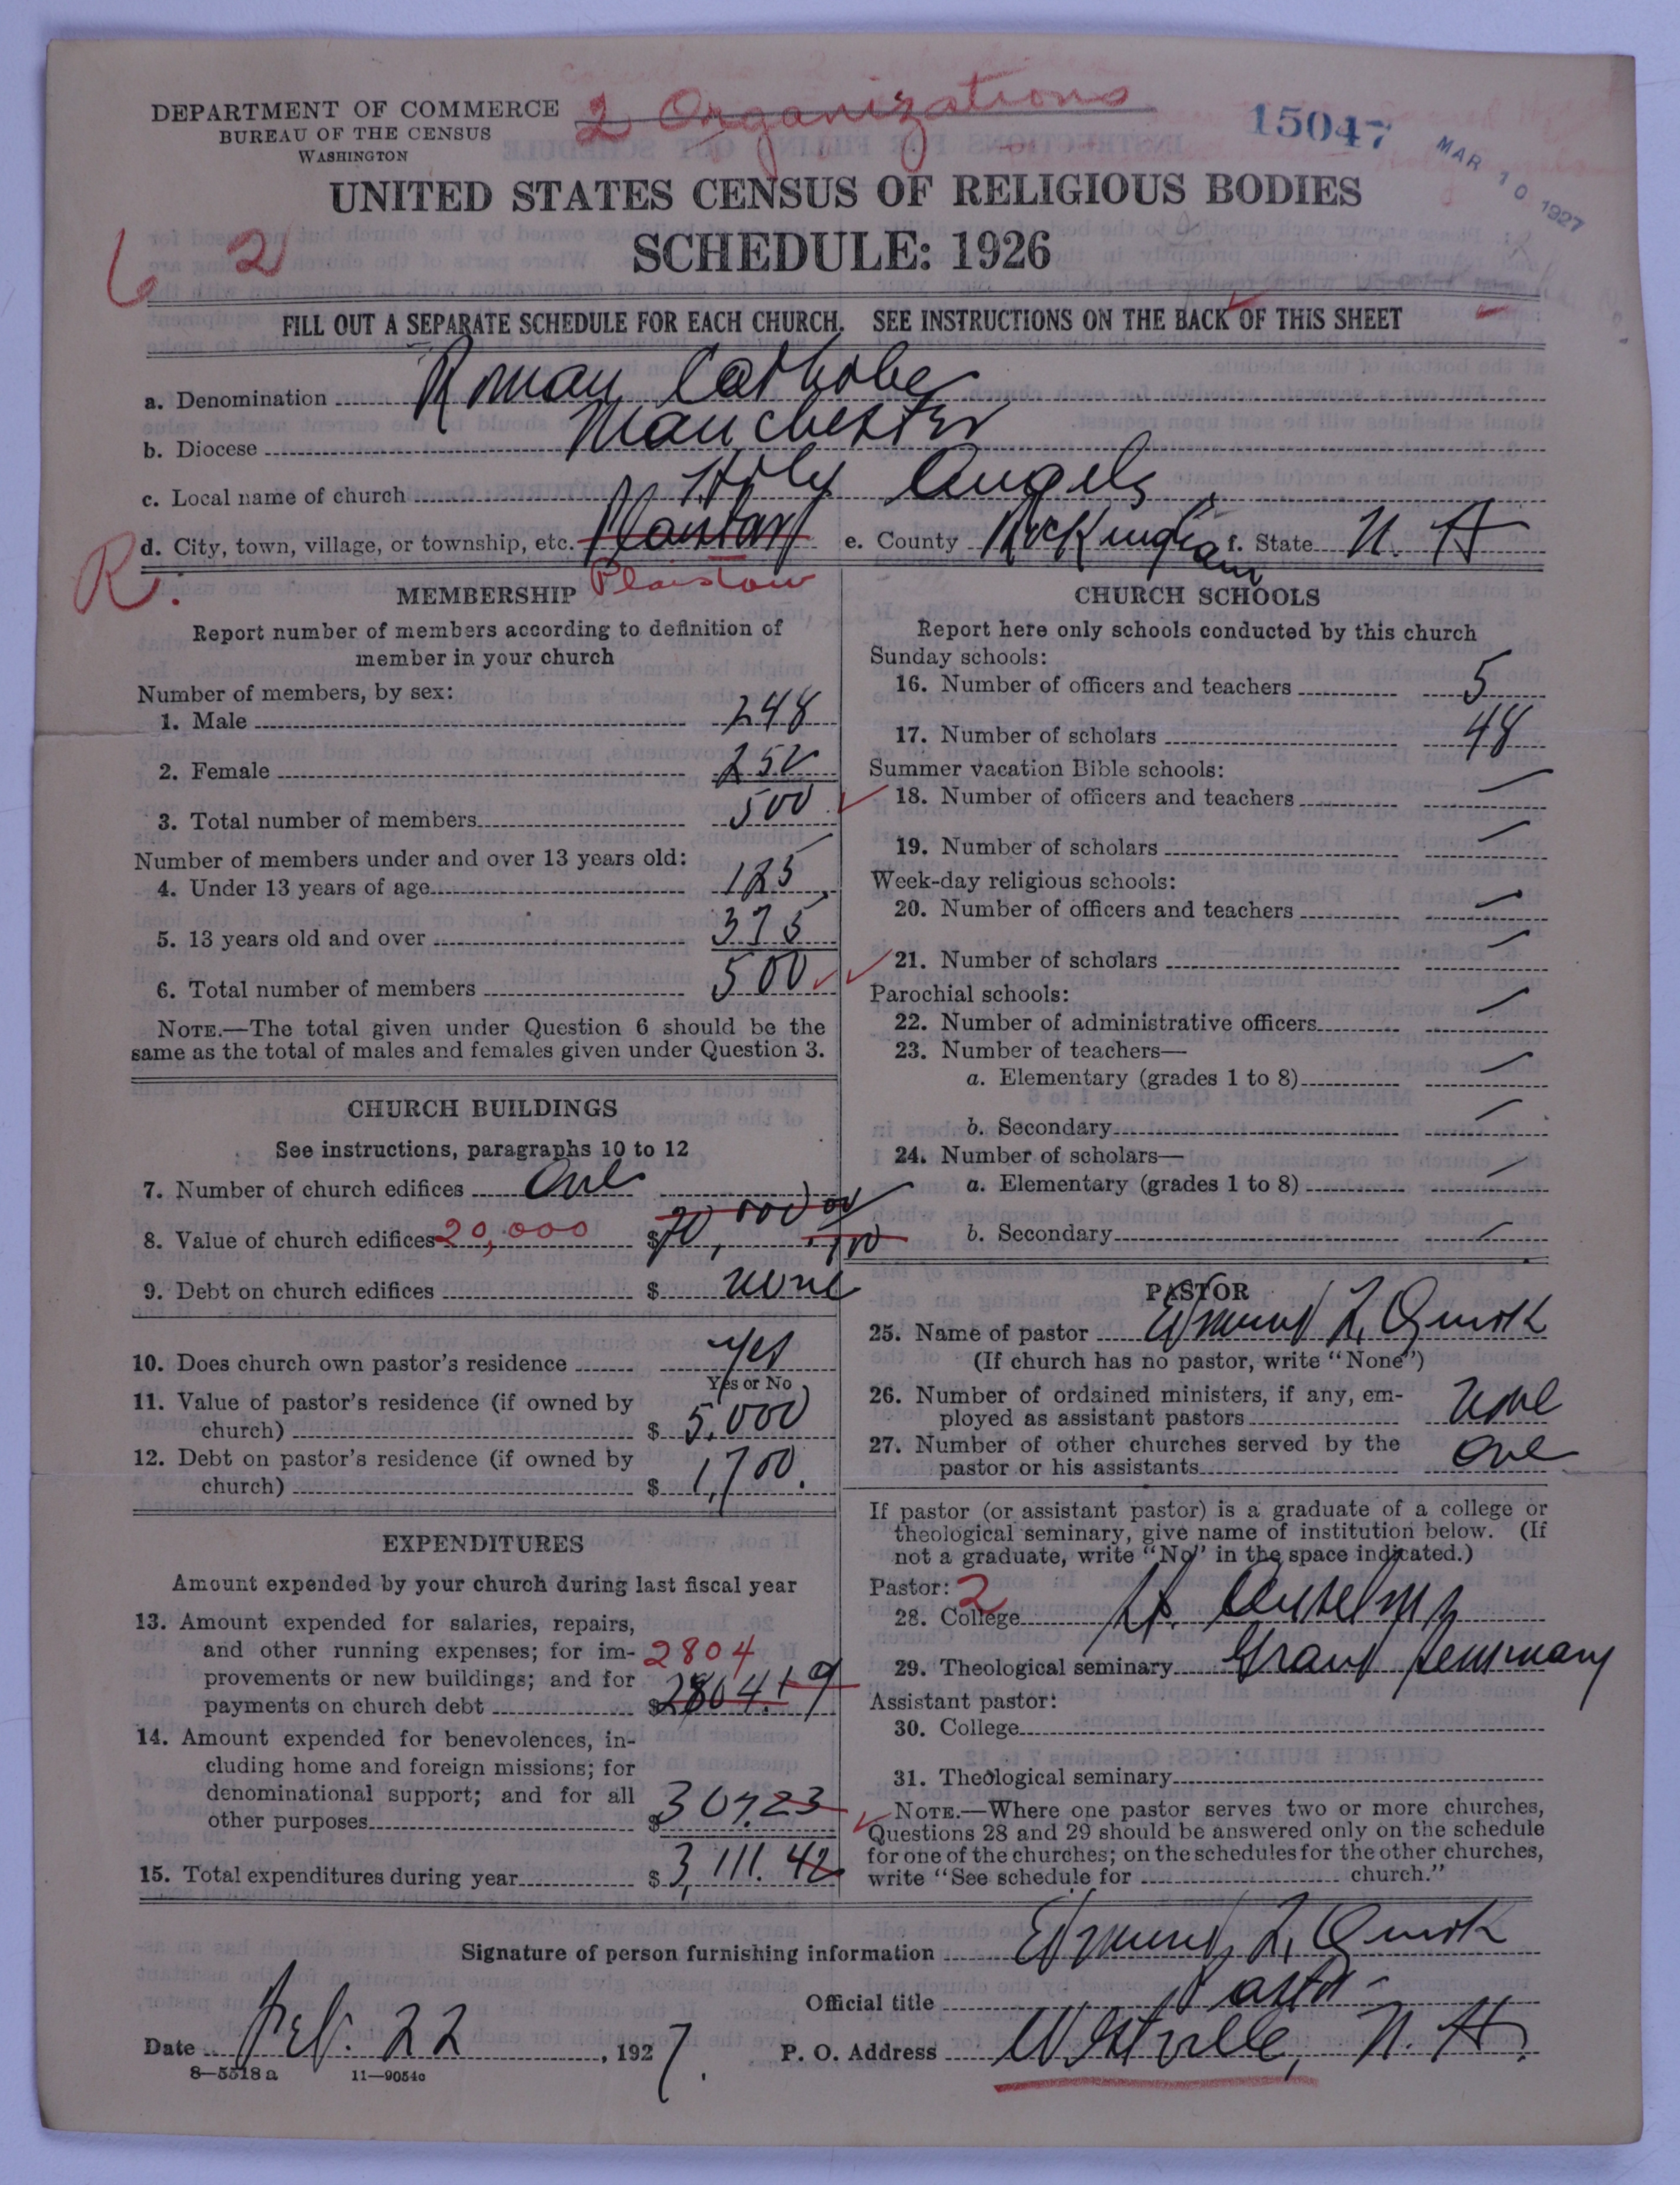 DEPARTMENT OF COMMERCE
BUREAU OF THE CENSUS
WASHINGTON
2 Organizations
15047
MAR 10 1927
UNITED STATES CENSUS OF RELIGIOUS BODIES
SCHEDULE: 1926
6 2
FILL OUT A SEPARATE SCHEDULE FOR EACH CHURCH. SEE INSTRUCTIONS ON THE BACK OF THIS SHEET
a. Denomination Roman Catholic
b. Diocese Manchester
c. Local name of church Holy Angels
d. City, town, village, or township, etc. e. County Rockingham f. State N. H
R. Plaistow
MEMBERSHIP
Report number of members according to definition of
member in your church
Number of members, by sex:
1. Male 248
2. Female 252
3. Total number of members 500
Number of members under and over 13 years old:
4. Under 13 years of age 125
5. 13 years old and over 375
6. Total number of members 500
NOTE.—The total given under Question 6 should be the
same as the total of males and females given under Question 3.
CHURCH BUILDINGS
See instructions, paragraphs 10 to 12
7. Number of church edifices One
8. Value of church edifices 20,000 $
9. Debt on church edifices $ none
10. Does church own pastor's residence Yes
Yes or No
11. Value of pastor's residence (if owned by
church) $ 5,000
12. Debt on pastor's residence (if owned by
church) $ 1,700.
EXPENDITURES
Amount expended by your church during last fiscal year
13. Amount expended for salaries, repairs,
and other running expenses; for im- 2804
provements or new buildings; and for
payments on church debt $ 2804.19
14. Amount expended for benevolences, in-
cluding home and foreign missions; for
denominational support; and for all
other purposes $ 307.23
15. Total expenditures during year $ 3,111.42
CHURCH SCHOOLS
Report here only schools conducted by this church
Sunday schools:
16. Number of officers and teachers 5
17. Number of scholars 48
Summer vacation Bible schools:
18. Number of officers and teachers —
19. Number of scholars —
Week-day religious schools:
20. Number of officers and teachers —
21. Number of scholars —
Parochial schools:
22. Number of administrative officers —
23. Number of teachers—
a. Elementary (grades 1 to 8) —
b. Secondary —
24. Number of scholars—
a. Elementary (grades 1 to 8) —
b. Secondary —
PASTOR
25. Name of pastor Edmund F. Quirk
(If church has no pastor, write "None")
26. Number of ordained ministers, if any, em-
ployed as assistant pastors None
27. Number of other churches served by the
pastor or his assistants One
If pastor (or assistant pastor) is a graduate of a college or
theological seminary, give name of institution below. (If
not a graduate, write "No" in the space indicated.)
Pastor: 2
28. College St. Anselm's
29. Theological seminary Grand Seminary
Assistant pastor:
30. College
31. Theological seminary
NOTE.—Where one pastor serves two or more churches,
Questions 28 and 29 should be answered only on the schedule
for one of the churches; on the schedules for the other churches,
write "See schedule for church."
Signature of person furnishing information Edmund F. Quirk
Official title Pastor
Date Feb. 22, 1927. P. O. Address Westville, N. H.
8—5518a 11—9054c